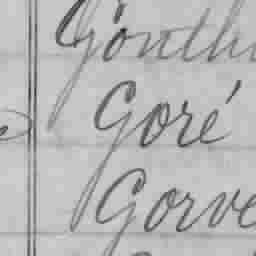 Gonthi
Goré
Gorve